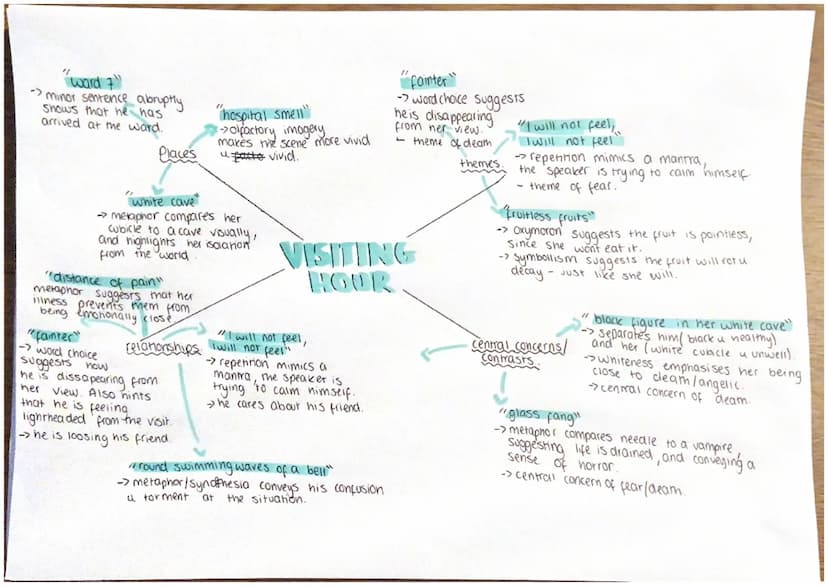 VISITING
HOUR
places
"ward 7"
→ minor sentence abruptly
shows that he has
arrived at the ward.
"hospital smell"
→ olfactory imagery
makes the scene more vivid
vivid.
"white cave"
→ metaphor compares her
cubicle to a cave visually,
and highlights her isolation
from the world.
themes.
"fainter"
→ word choice suggests
he is disappearing
from her view.
theme of death
"I will not feel,
I will not feel"
→ repetition mimics a mantra,
the speaker is trying to calm himself
- theme of fear.
"fruitless fruits"
→ oxymoron suggests the fruit is pointless,
since she wont eat it.
→ symbolism suggests the fruit will rot &
decay - just like she will.
relationships
"distance of pain"
metaphor suggests that her
illness prevents them from
being emotionally close
"fainter"
→ word choice
suggests how
he is dissapearing from
her view. Also hints
that he is feeling
lightheaded from the visit.
→ he is loosing his friend
"I will not feel,
I will not feel"
→ repetition mimics a
mantra, the speaker is
trying to calm himself.
→ he cares about his friend.
"round swimming waves of a bell"
→ metaphor/synethesia conveys his confusion
& torment at the situation.
central concerns/
contrasts.
"black figure in her white cave"
→ separates him (black & healthy)
and her (white cubicle & unwell)
→ whiteness emphasises her being
close to death/angelic.
→ central concern of death.
"glass fang"
→ metaphor compares needle to a vampire,
suggesting life is drained, and conveying a
sense of horror.
→ central concern of fear/death.